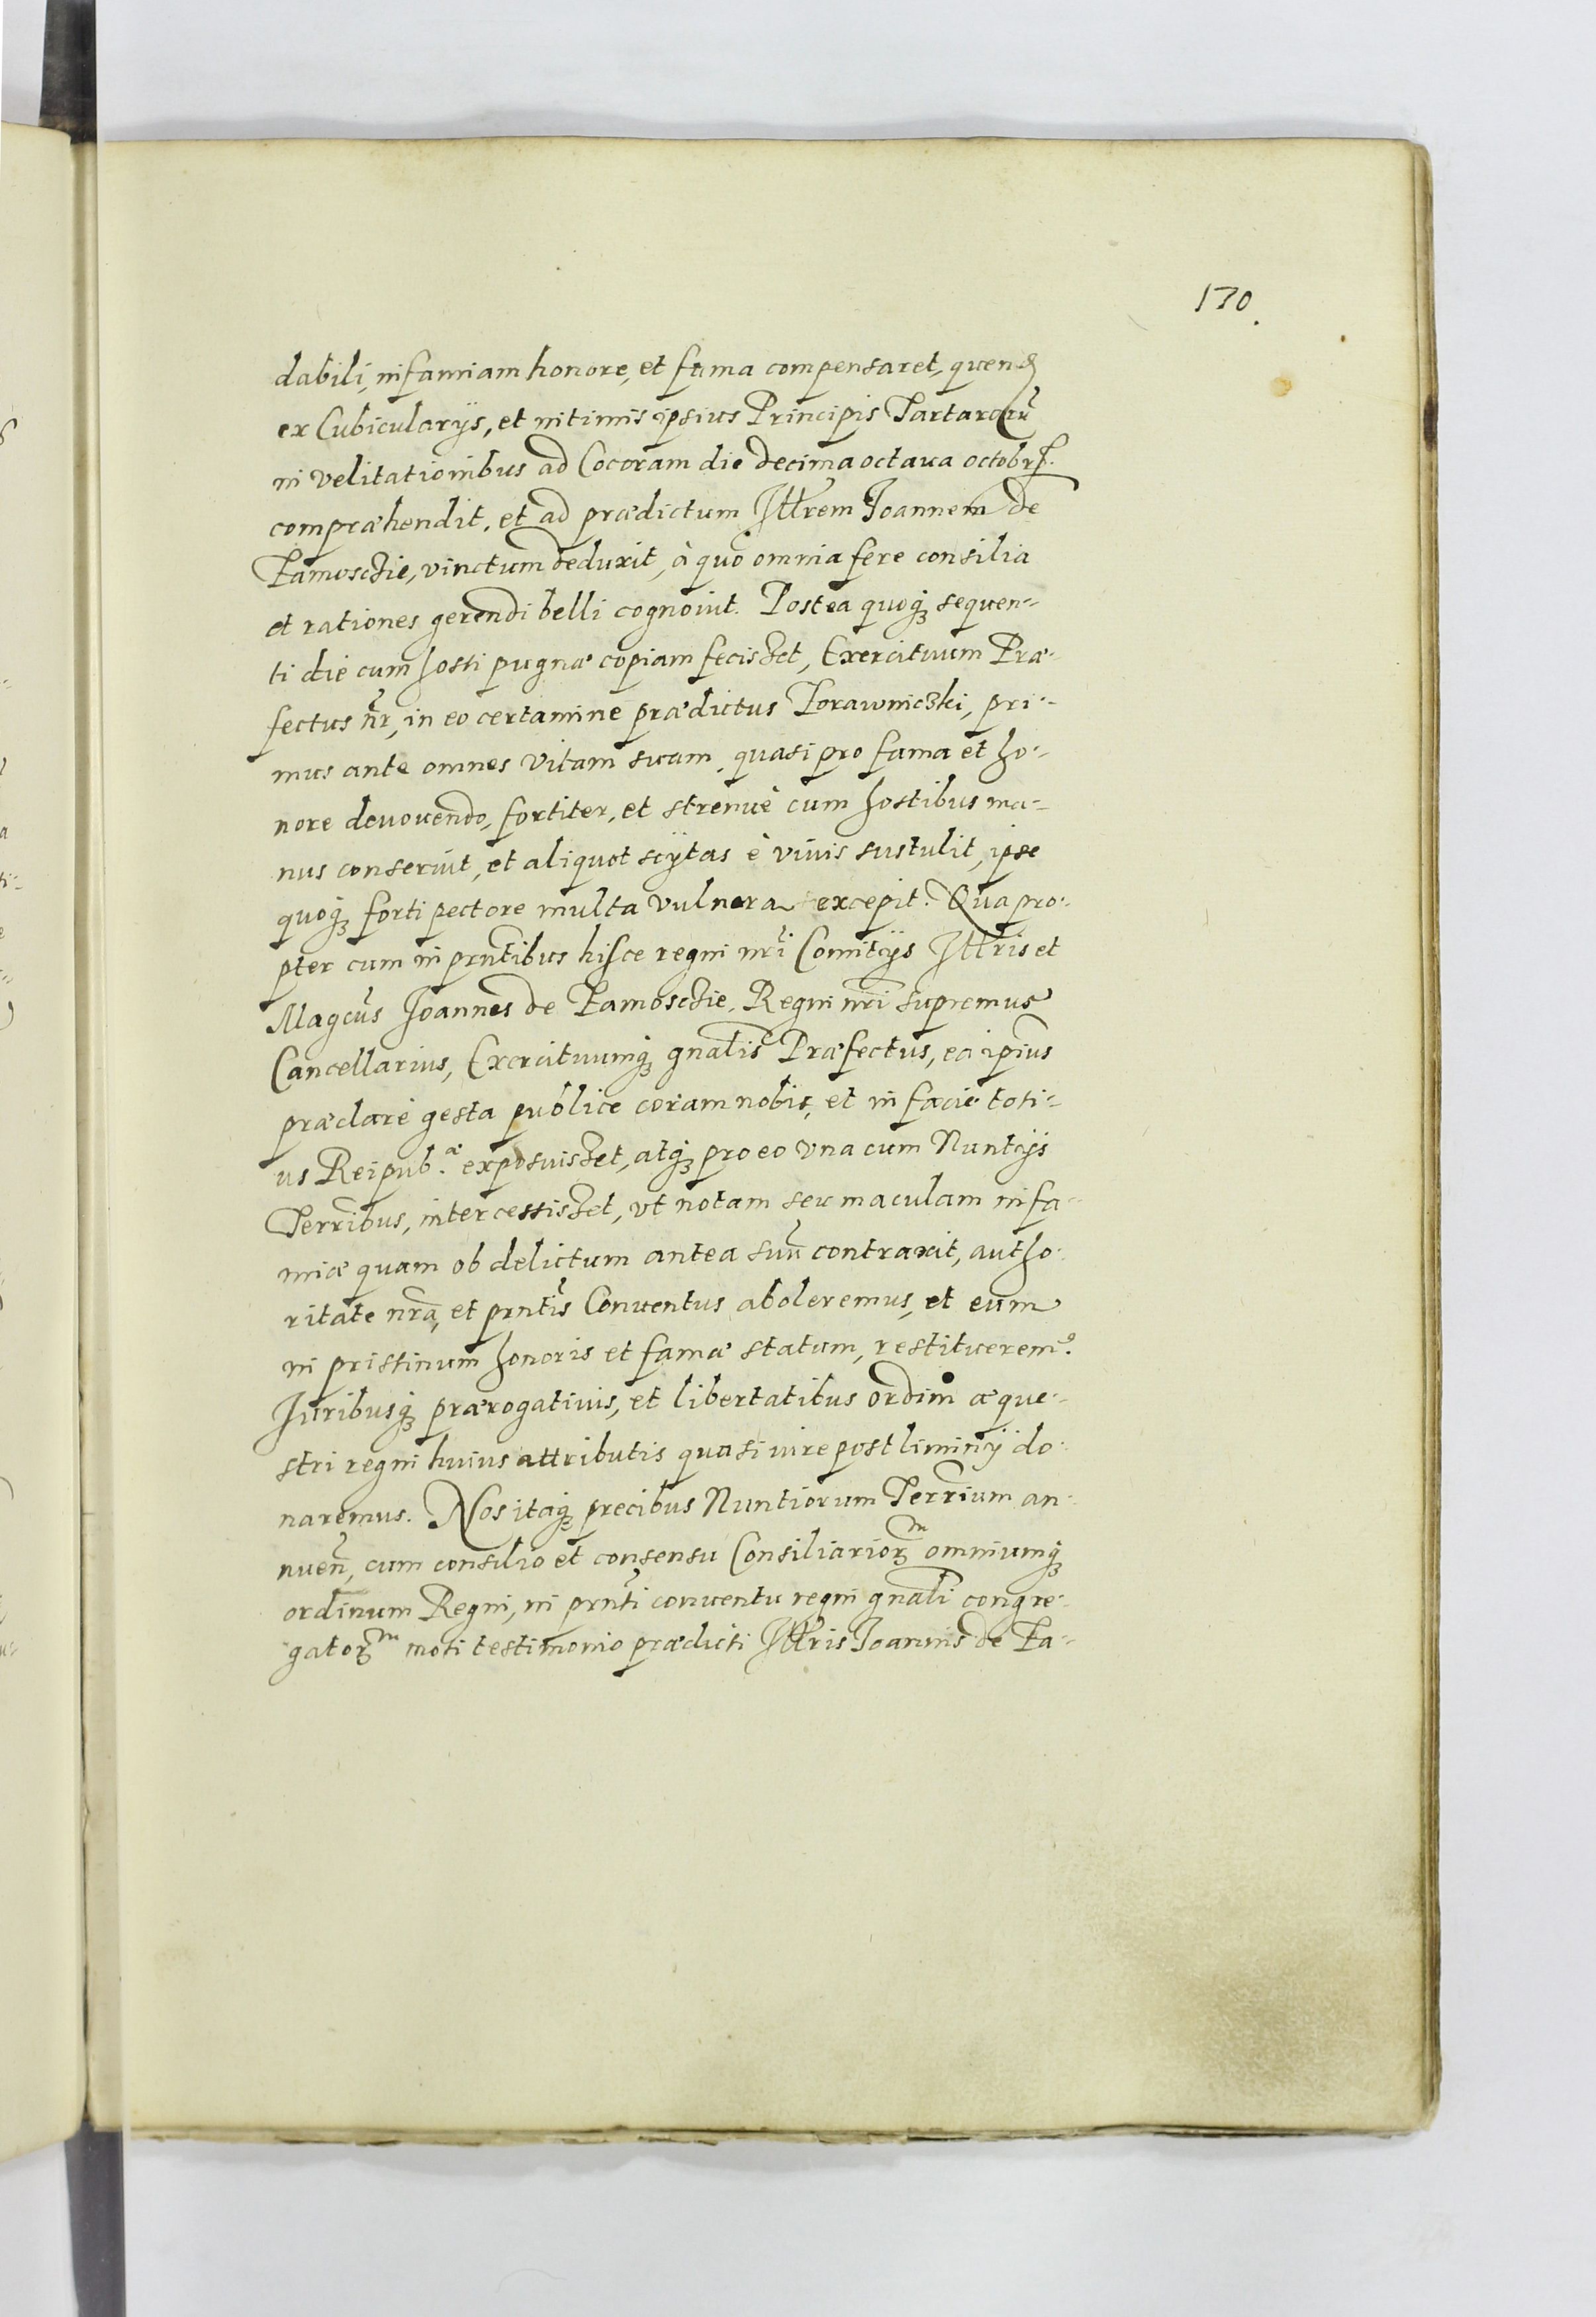 170.
dabili, infamiam honore, et fama compensaret, quend̃
ex Cubicularijs, et intimis ipsius Principis Tartarorũ
in velitationibus ad Cocoram die decima octaua octobrꝭ.
compræhendit, et ad prædictum Illrem Joannem de
Zamosczie, vinctum deduxit, à quo omnia fere consilia
et rationes gerendi belli cognouit. Postea quoqꝫ sequen-
ti die cum hosti pugnæ copiam feciszet, Exercituum Præ-
fectus nr̃, in eo certamine prædictus Porawniczki, pri-
mus ante omnes vitam suam, quasi pro fama et ho-
nore deuouendo, fortiter, et strenuè cum hostibus ma-
nus conseruit, et aliquot scÿtas è viuis sustulit, ipse
quoqꝫ forti pectore multa vulnera excepit. Qua pro-
pter cum in prntibus hisce regni nri Comitijs Illris et
Magcus Joannes de Zamosczie, Regni nri supremus
Cancellarius, Exercituumqꝫ gnalis Præfectus, ea ipius
præclarè gesta publice coram nobis, et in facie toti-
us Reipub.æ exposuiszet, atqꝫ pro eo vna cum Nuntijs
Terribus, intercessiszet, vt notam seu maculam infa-
miæ quam ob delictum antea suũ contraxit, autho-
ritate nra, et prntis Conuentus aboleremus, et eum
in pristinum honoris et famæ statum, restituerem9.
Juribusqꝫ prærogatiuis, et libertatibus ordini æque-
stri regni huius attributis quasi iure postliminij do-
naremus. Nos itaqꝫ precibus Nuntiorum Terrium an-
nuen̄, cum consilio et consensu Consiliarioꝝm omniumqꝫ
ordinum Regni, in prnti conuentu regni gnali congre-
gatoꝝm moti testimonio prædicti Illris Joannis de Za-